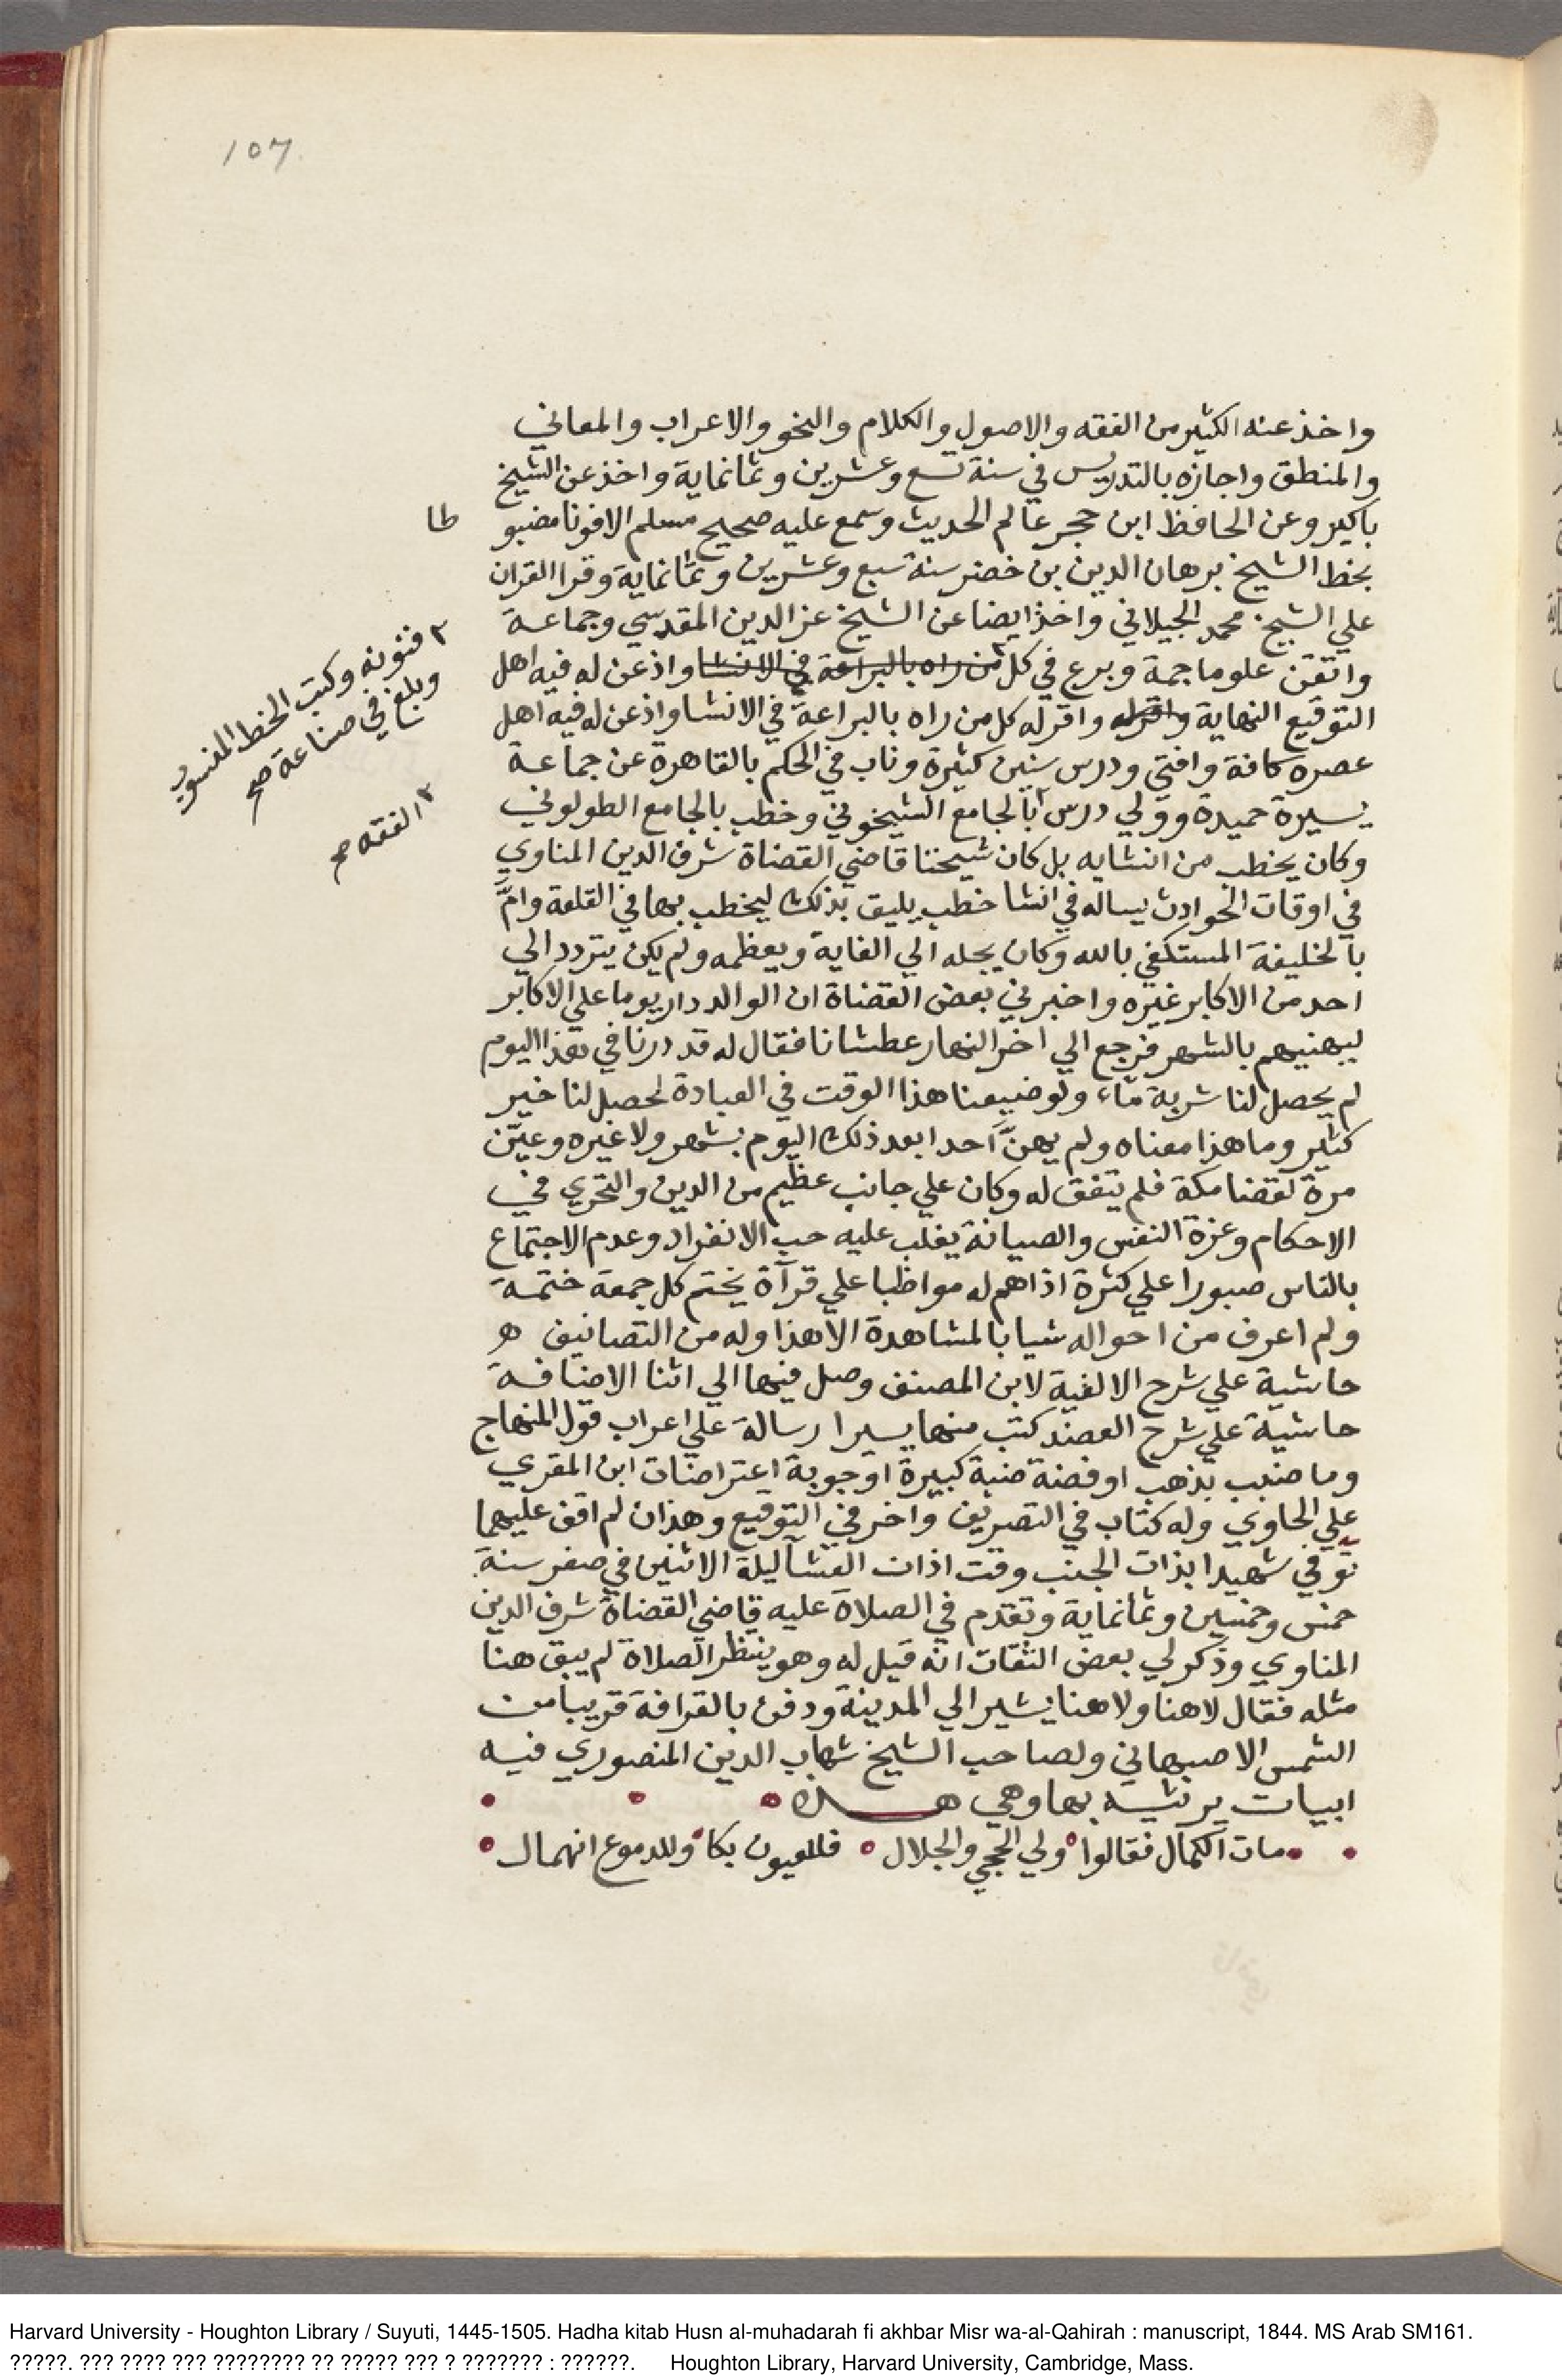 107
واخذ عنه الكثير من الفقه والاصول والكلام والنحو والاعراب والمعاني
والمنطق واجازه بالتدريس في سنة تسع وعشرين وثمانماية واخذ عن الشيخ
باكير وعن الحافظ ابن حجر عالم الحديث وسمع عليه صحيح مسلم الا فوتا مضبو طا
بخط الشيخ برهان الدين بن خضر سنة سبع وعشرين وثمانماية وقرا القران
علي الشيخ محمد الجيلاني واخذ ايضا عن الشيخ عز الدين المقدسي وجماعة
واتقن علوما جمة وبرع في كل من راه بالبراعة في الانشا واذعن له فيه اهل
التوقيع النهاية واقر له واقر له كل من راه بالبراعة في الانشا واذعن له فيه اهل
عصره كافة وافتي ودرس سنين كثيرة وناب في الحكم بالقاهرة عن جماعة
بسيرة حميدة وولي درس بالجامع الشيخوني وخطب بالجامع الطولوني
وكان يخطب من انشايه بل كان شيخنا قاضي القضاة شرف الدين المناوي
في اوقات الحوادث يساله في انشا خطب يليق بذلك ليخطب بها في القلعة وامَّ
بالخليفة المستكفي بالله وكان يجله الي الغاية ويعظمه ولم يكن يتردد الي
احد من الاكابر غيره واخبرني بعض القضاة ان الوالد دار يوما علي الاكابر
ليهنيهم بالشهر فرجع الي اخر النهار عطشانا فقال له قد درنا في هذا اليوم
لم يحصل لنا شربة ماء ولو ضيعنا هذا الوقت في العبادة لحصل لنا خير
كثير وما هذا معناه ولم يهنَّ احدا بعد ذلك اليوم بشهر ولا غيره وعيّن
مرة لقضا مكة فلم يتفق له وكان علي جانب عظيم من الدين والتحري في
الاحكام وعزة النفس والصيانة يغلب عليه حب الانفراد وعدم الاجتماع
بالناس صبورا علي كثرة اذاهم له مواظبا علي قرآة يختم كل جمعة ختمة
ولم اعرف من احواله شيا بالمشاهدة الا هذا وله من التصانيف ه
حاشية علي شرح الالفية لابن المصنف وصل فيها الي اثنا الاضافة
حاشية علي شرح العضد كتب منها يسيرا رسالة علي اعراب قول المنهاج
وما ضبب بذهب او فضة ضبة كبيرة اوجوبة اعتراضات ابن المقري
علي الحاوي وله كتاب في التصريف واخر في التوقيع وهذان لم اقف عليهما
توفي شهيدا بذات الجنب وقت اذان العشآ ليلة الاثنين في صفر سنة
خمس وخمسين وثمانماية وتقدم في الصلاة عليه قاضي القضاة شرف الدين
المناوي وذكر لي بعض الثقات انه قيل له وهو ينتظر الصلاة لم يبق هنا
مثله فقال لا هنا ولا هنا يشير الي المدينة ودفن بالقرافة قريبا من
الشمس الاصبهاني ولصاحب الشيخ شهاب الدين المنصوري فيه
ابيات يرثيه بها وهي هذه
مات الكمال فقالوا ولي الحجي والجلال فللعيون بكا وللدموع انهمال
٢ فنونه وكتب الخط المنسوب
وبلغ في صناعة صح
٢ الفقه صح
Harvard University - Houghton Library / Suyuti, 1445-1505. Hadha kitab Husn al-muhadarah fi akhbar Misr wa-al-Qahirah : manuscript, 1844. MS Arab SM161.
?????. ??? ???? ??? ???????? ?? ????? ??? ? ??????? : ??????. Houghton Library, Harvard University, Cambridge, Mass.